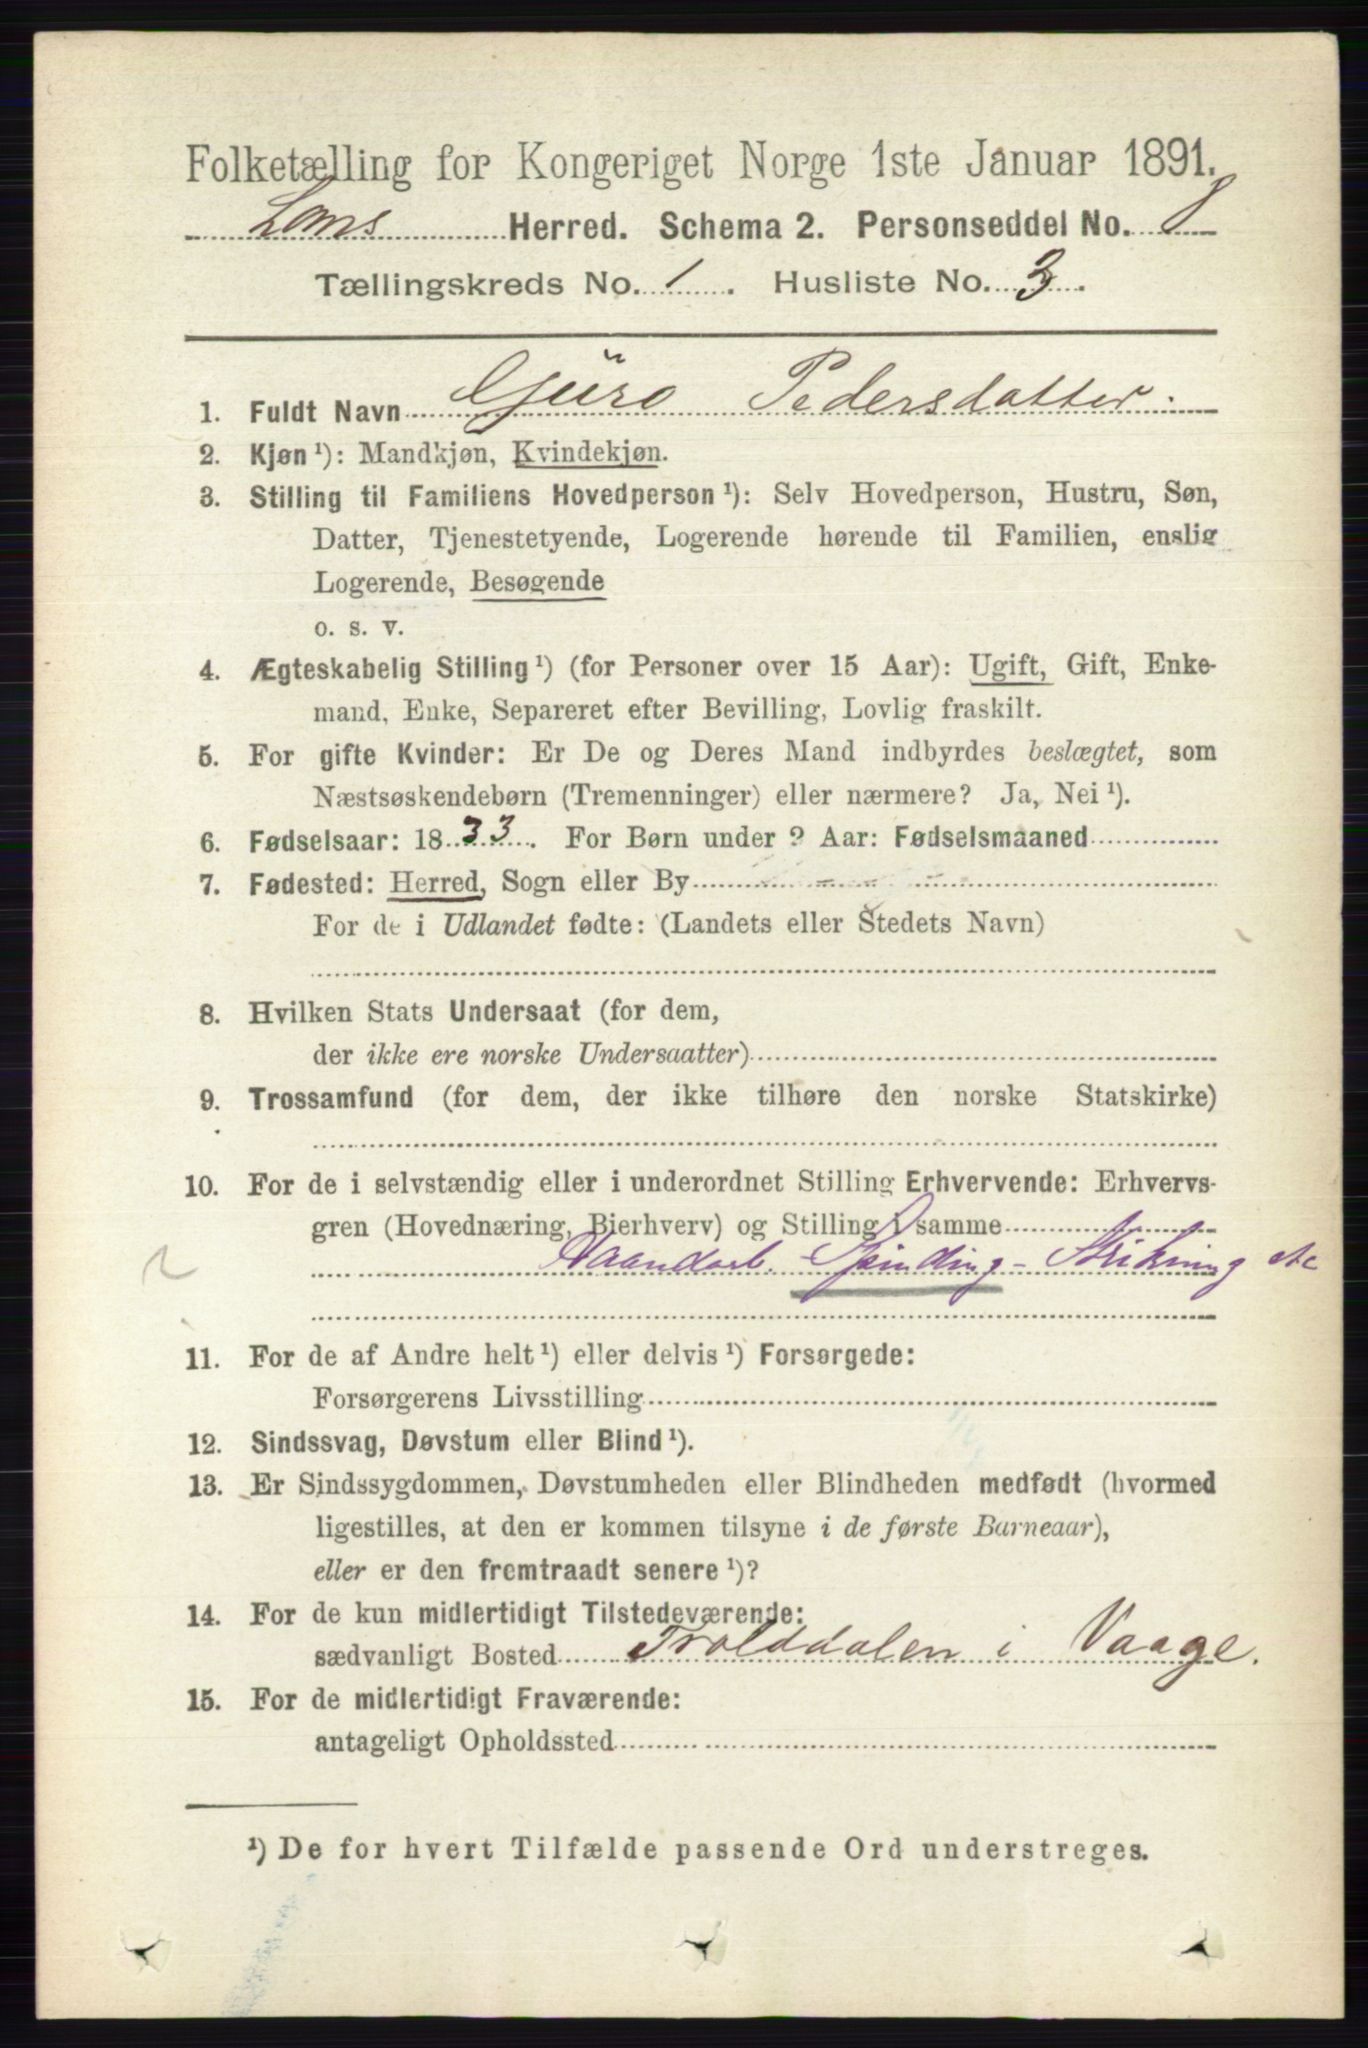 Folketælling for Kongeriget Norge 1ste Januar 1891.
Loms Herred. Schema 2. Personseddel No. 8
Tællingskreds No. 1. Husliste No. 3.
1. Fuldt Navn Guro Pedersdatter.
2. Kjøn ¹): Mandkjøn, Kvindekjøn.
3. Stilling til Familiens Hovedperson ¹): Selv Hovedperson, Hustru, Søn,
Datter, Tjenestetyende, Logerende hørende til Familien, enslig
Logerende, Besøgende
o. s. v.
4. Ægteskabelig Stilling ¹) (for Personer over 15 Aar): Ugift, Gift, Enke-
mand, Enke, Separeret efter Bevilling, Lovlig fraskilt.
5. For gifte Kvinder: Er De og Deres Mand indbyrdes beslægtet, som
Næstsøskendebørn (Tremenninger) eller nærmere? Ja, Nei ¹).
6. Fødselsaar: 1833. For Børn under 2 Aar: Fødselsmaaned
7. Fødested: Herred, Sogn eller By
For de i Udlandet fødte: (Landets eller Stedets Navn)
8. Hvilken Stats Undersaat (for dem,
der ikke ere norske Undersaatter)
9. Trossamfund (for dem, der ikke tilhøre den norske Statskirke)
10. For de i selvstændig eller i underordnet Stilling Erhvervende: Erhvervs-
gren (Hovednæring, Bierhverv) og Stilling i samme
Haandarb. Spinding - Strikning etc
11. For de af Andre helt ¹) eller delvis ¹) Forsørgede:
Forsørgerens Livsstilling
12. Sindssvag, Døvstum eller Blind ¹).
13. Er Sindssygdommen, Døvstumheden eller Blindheden medfødt (hvormed
ligestilles, at den er kommen tilsyne i de første Barneaar),
eller er den fremtraadt senere ¹)?
14. For de kun midlertidigt Tilstedeværende:
sædvanligt Bosted Trolddalen i Vaage.
15. For de midlertidigt Fraværende:
antageligt Opholdssted
¹) De for hvert Tilfælde passende Ord understreges.